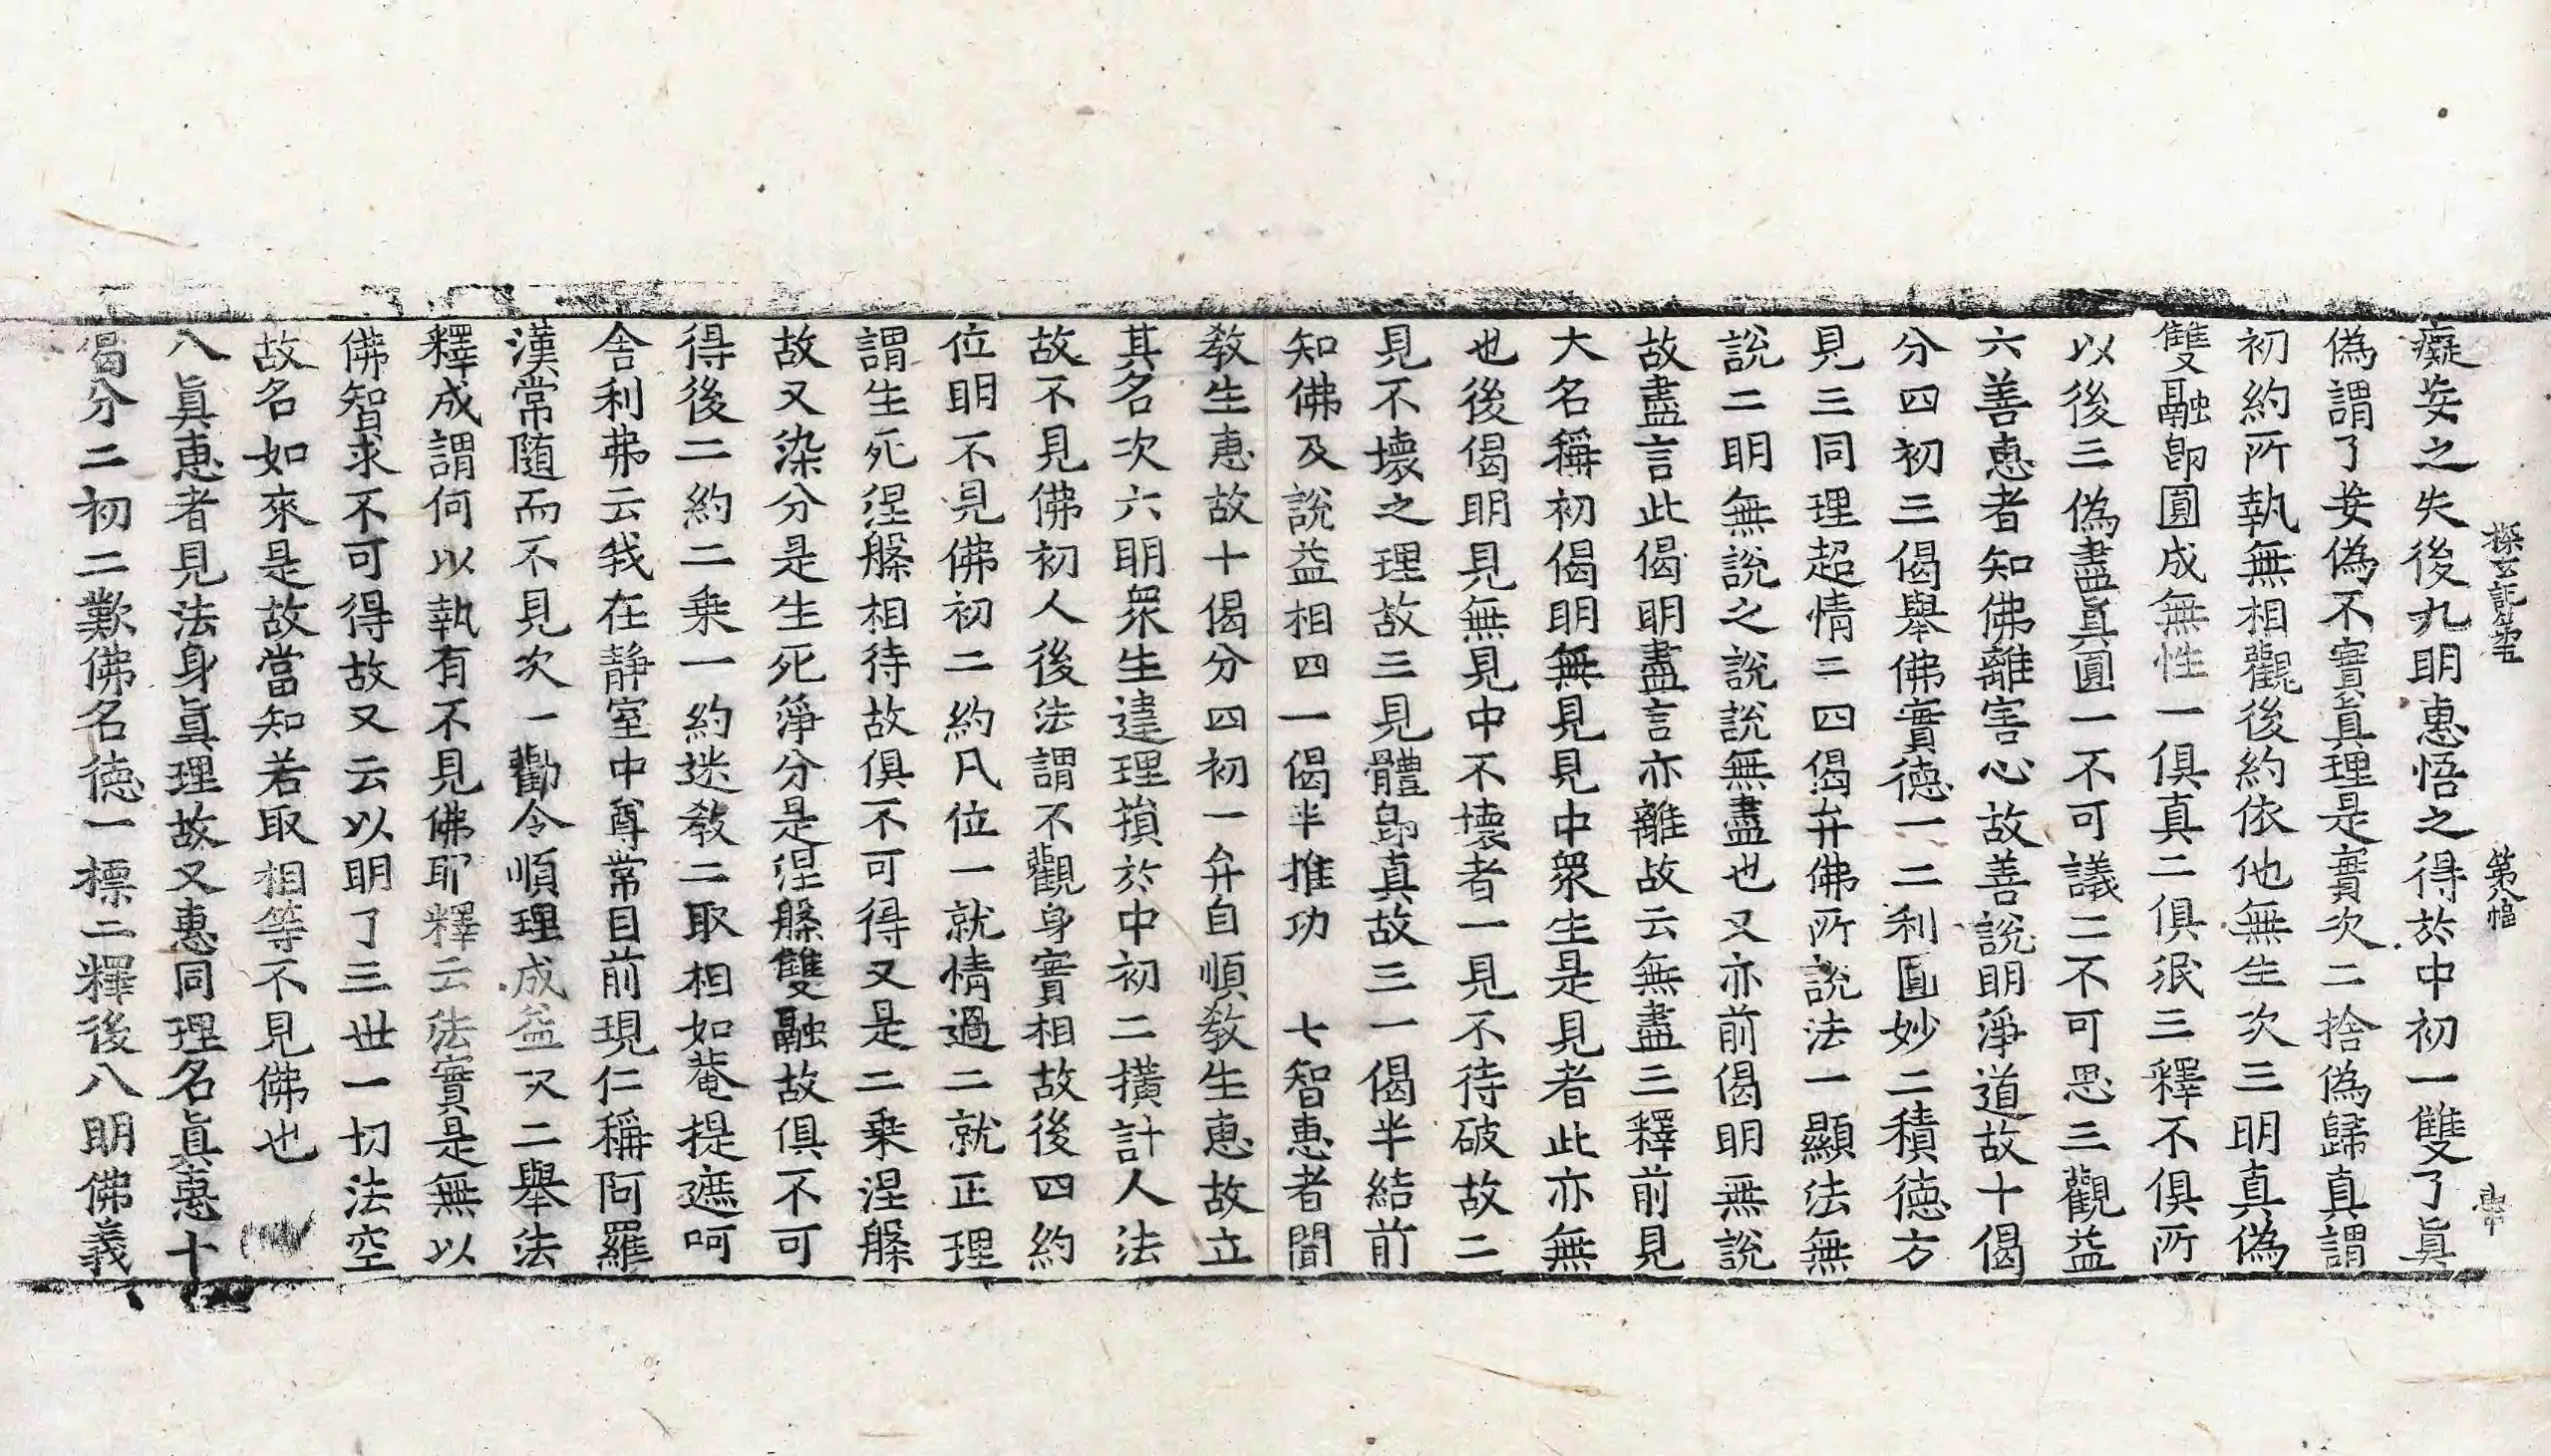 探玄記第五 第八幅 常
癡妄之失後九明惠悟之得於中初一雙了眞
偽謂了妄偽不實眞理是實次二捨偽歸真謂
初約所執無相觀後約依他無生次三明真偽
雙融即圓成無性一俱真二俱泯三釋不俱所
以後三偽盡真圓一不可議二不可思三觀益
六善惠者知佛離害心故善說明淨道故十偈
分四初三偈舉佛實德一二利圓妙二積德方
見三同理超情二四偈弁佛所說法一顯法無
說二明無說之說說無盡也又亦前偈明無說
故盡言此偈明盡言亦離故云無盡三釋前見
大名稱初偈明無見見中衆生是見者此亦無
也後偈明見無見中不壞者一見不待破故二
見不壞之理故三見體即真故三一偈半結前
知佛及說益相四一偈半推功 七智惠者聞
教生惠故十偈分四初一弁自順教生惠故立
其名次六明衆生違理損於中初二撗計人法
故不見佛初人後法謂不觀身實相故後四約
位明不見佛初二約凡位一就情過二就正理
謂生死涅槃相待故俱不可得又是二乗涅槃
故又染分是生死淨分是涅槃雙融故俱不可
得後二約二乗一約迷教二取相如菴提遮呵
舎利弗云我在静室中尊常目前現仁稱阿羅
漢常隨而不見次一勸令順理成益次二舉法
釋成謂何以執有不見佛耶釋云法實是無以
佛智求不可得故又云以明了三世一切法空
故名如來是故當知若取相等不見佛也
八眞惠者見法身眞理故又惠同理名眞惠十
偈分二初二歎佛名德一標二釋後八明佛義